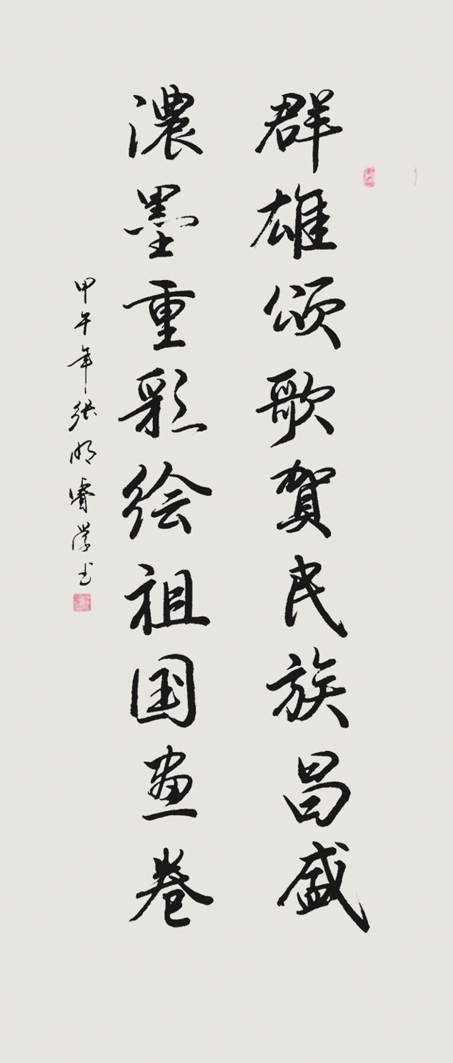 群雄颂歌贺民族昌盛
濃墨重彩绘祖国画卷
甲午年张明睿学书